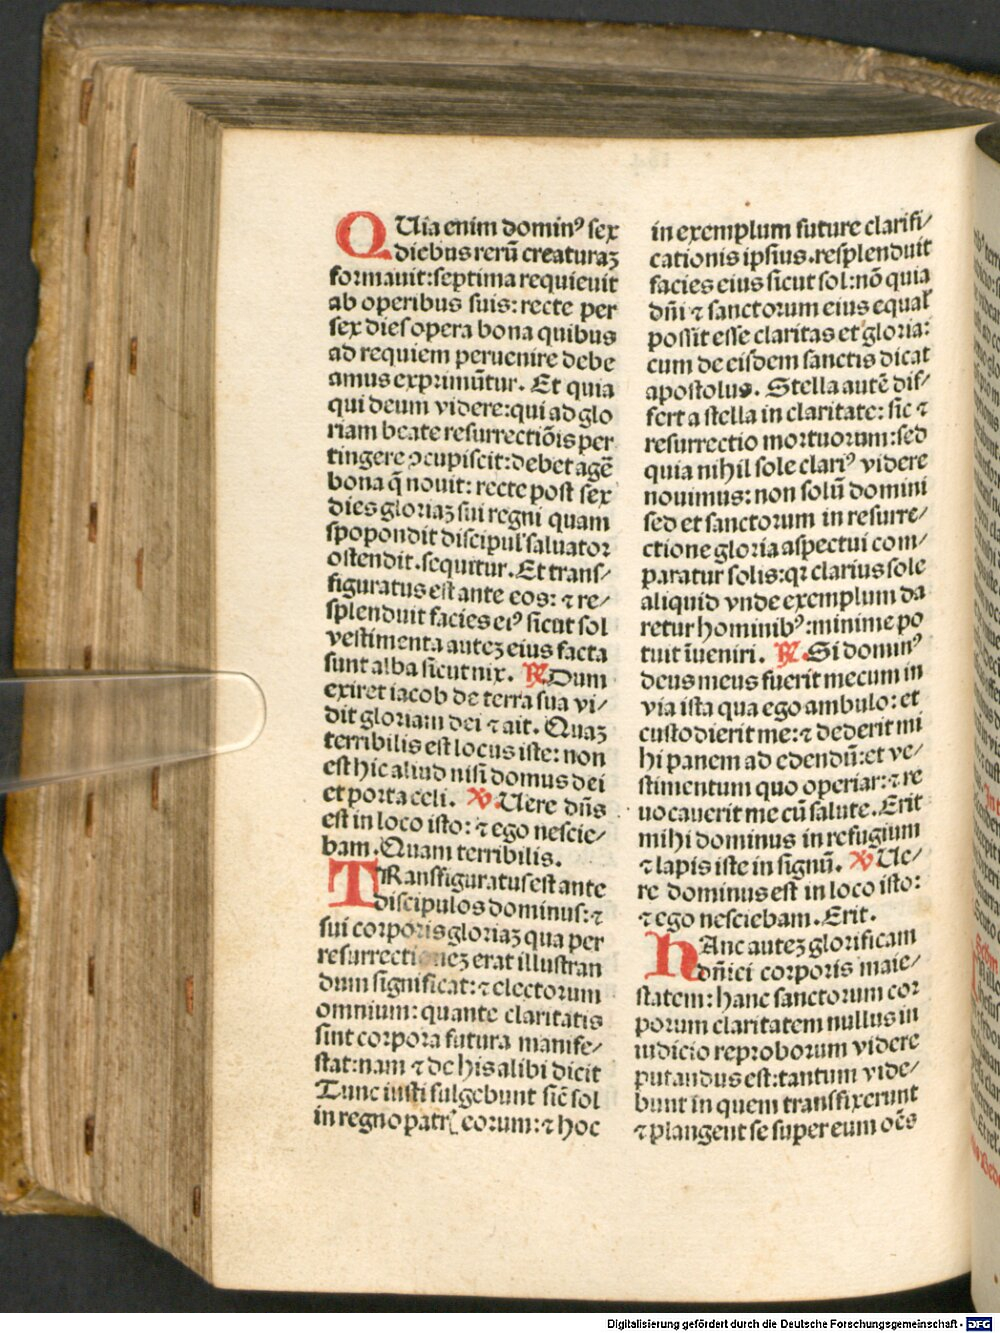 QUia enim dominꝰ sex
diebus rerū creaturaꝫ
formauit: septima requieuit
ab operibus suis: recte per
sex dies opera bona quibus
ad requiem peruenire debe
amus exprimūtur. Et quia
qui deum videre: qui ad glo
riam beate resurrectiōis per
tingere ꝯcupiscit: debet agē
bona q̄ nouit: recte post sex
dies gloriaꝫ sui regni quam
spopondit discipul' saluator
ostendit. sequitur. Et trans/
figuratus est ante eos: ⁊ re/
splenduit facies eiꝰ sicut sol
vestimenta auteꝫ eius facta
sunt alba sicut nix. ℟. Dum
exiret iacob de terra sua vi/
dit gloriam dei ⁊ ait. Quaꝫ
terribilis est locus iste: non
est hic aliud nisi domus dei
et porta celi. ℣. Uere dn̄s
est in loco isto: ⁊ ego nescie/
bam. Quam terribilis.
TRansfiguratus est ante
discipulos dominus: ⁊
sui corporis gloriaꝫ qua per
resurrectioneꝫ erat illustran
dum significat: ⁊ electorum
omnium: quante claritatis
sint corpora futura manife/
stat: nam ⁊ de his alibi dicit
Tunc iusti fulgebunt sic̄ sol
in regno patrꝭ eorum: ⁊ hoc
in exemplum future clarifi/
cationis ipsius. resplenduit
facies eius sicut sol: nō quia
dn̄i ⁊ sanctorum eius equal'
possit esse claritas et gloria:
cum de eisdem sanctis dicat
apostolus. Stella autē dif/
fert a stella in claritate: sic ⁊
resurrectio mortuorum: sed
quia nihil sole clariꝰ videre
nouimus: non solū domini
sed et sanctorum in resurre/
ctione gloria aspectui com/
paratur solis: qꝛ clarius sole
aliquid vnde exemplum da
retur hominibꝰ: minime po
tuit īueniri. ℟. Si dominꝰ
deus meus fuerit mecum in
via ista qua ego ambulo: et
custodierit me: ⁊ dederit mi
hi panem ad edendū: et ve/
stimentum quo operiar: ⁊ re
uocauerit me cū salute. Erit
mihi dominus in refugium
⁊ lapis iste in signū. ℣. Ue/
re dominus est in loco isto:
⁊ ego nesciebam. Erit.
hAnc auteꝫ glorificam
dn̄ici corporis maie/
statem: hanc sanctorum cor
porum claritatem nullus in
iudicio reproborum videre
putandus est: tantum vide/
bunt in quem transfixerunt
⁊ plangent se super eum oēs
Digitalisierung gefördert durch die Deutsche Forschungsgemeinschaft - DFG